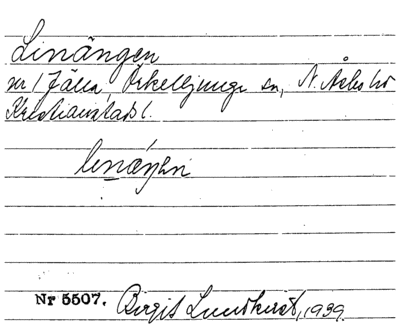 Linängen
nr 1 Fälla, Örkelljunga sn, N. Åsbo hd
Kristianstads l.
linæŋən
Nr 5507. Birgit Lundkvist, 1939.